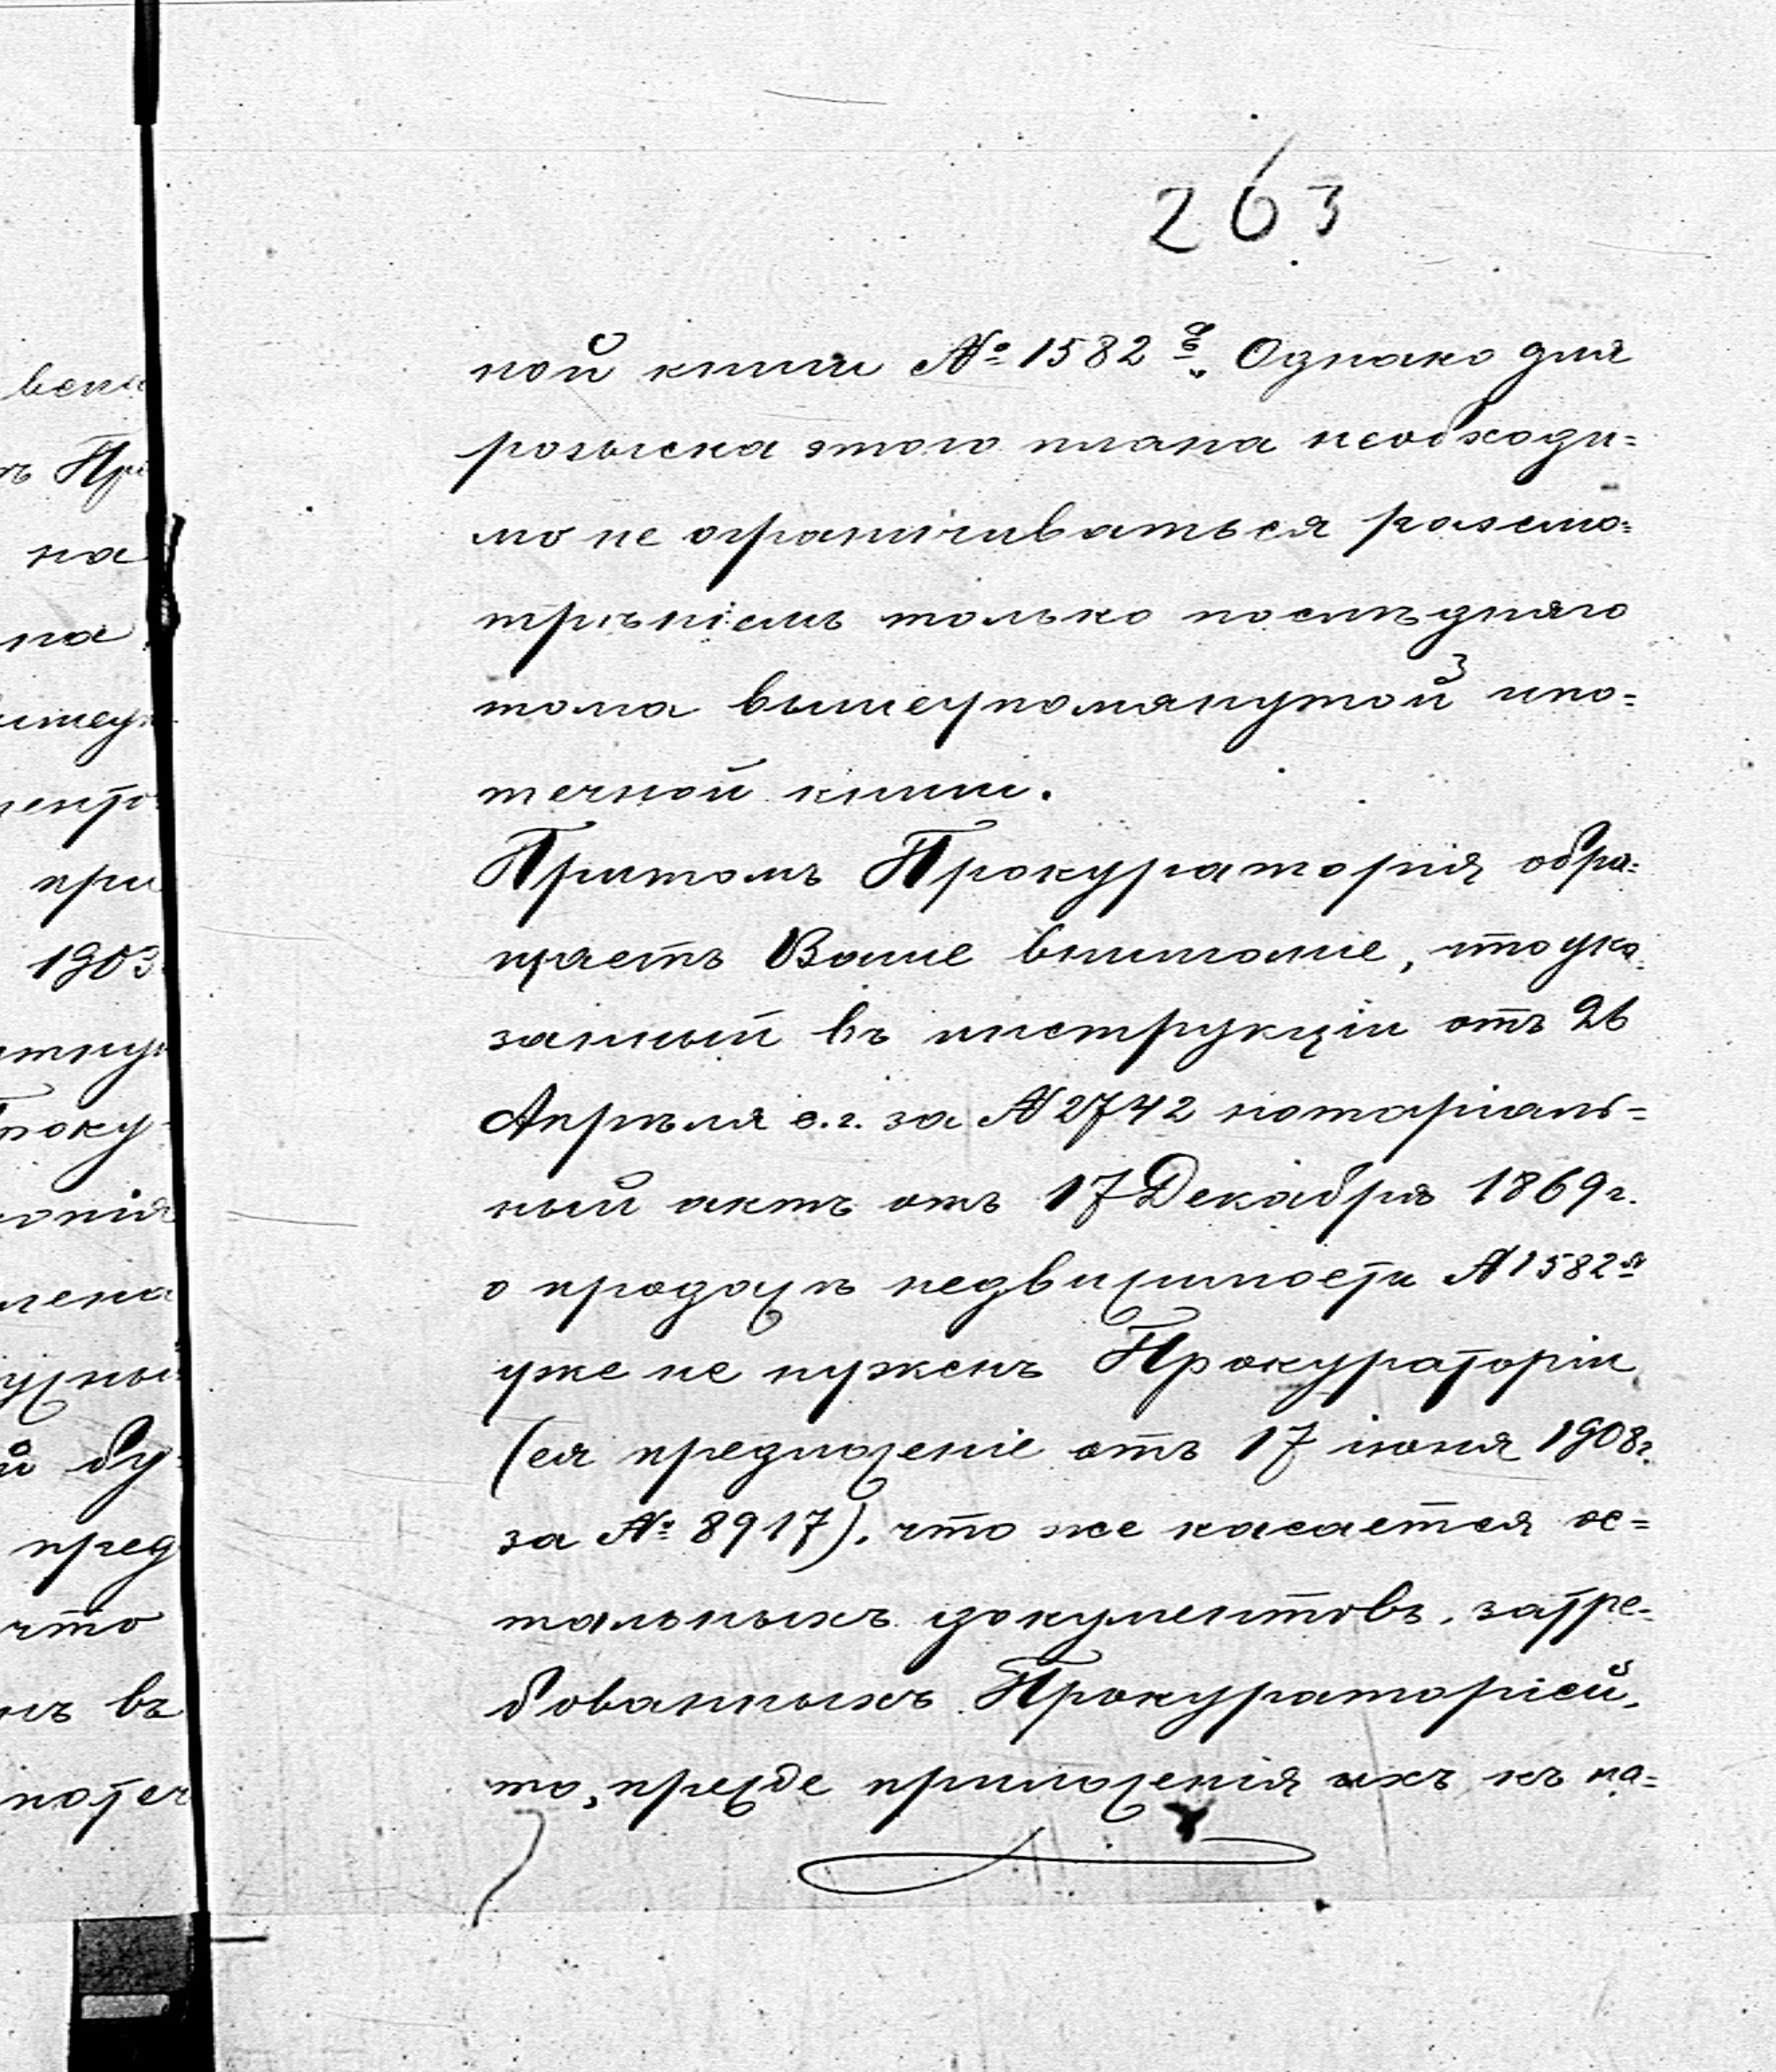 263
ной книги № 1582 б. Однако для
розыска этого плана необходи=
мо не ограничиваться разсмо=
трѣніемъ только послѣдняго
тома вышеупомянутой ипо=
течной книги.
Притомъ Прокураторія обра=
щаетъ Ваше вниманіе, что ука=
занный въ инструкціи отъ 26
Апрѣля с.г. за № 2742 нотаріаль=
ный актъ отъ 17 Декабря 1869 г.
о продажѣ недвижимости № 1582
уже не нуженъ Прокураторіи
(ея предложеніе отъ 17 іюня 1908 г.
за № 8917). что же касается ос=
тальныхъ документовъ, затре=
бованныхъ Прокураторіей,
то, прежде приложенія ихъ къ на=
на
на
при
1903
пред
что
въ